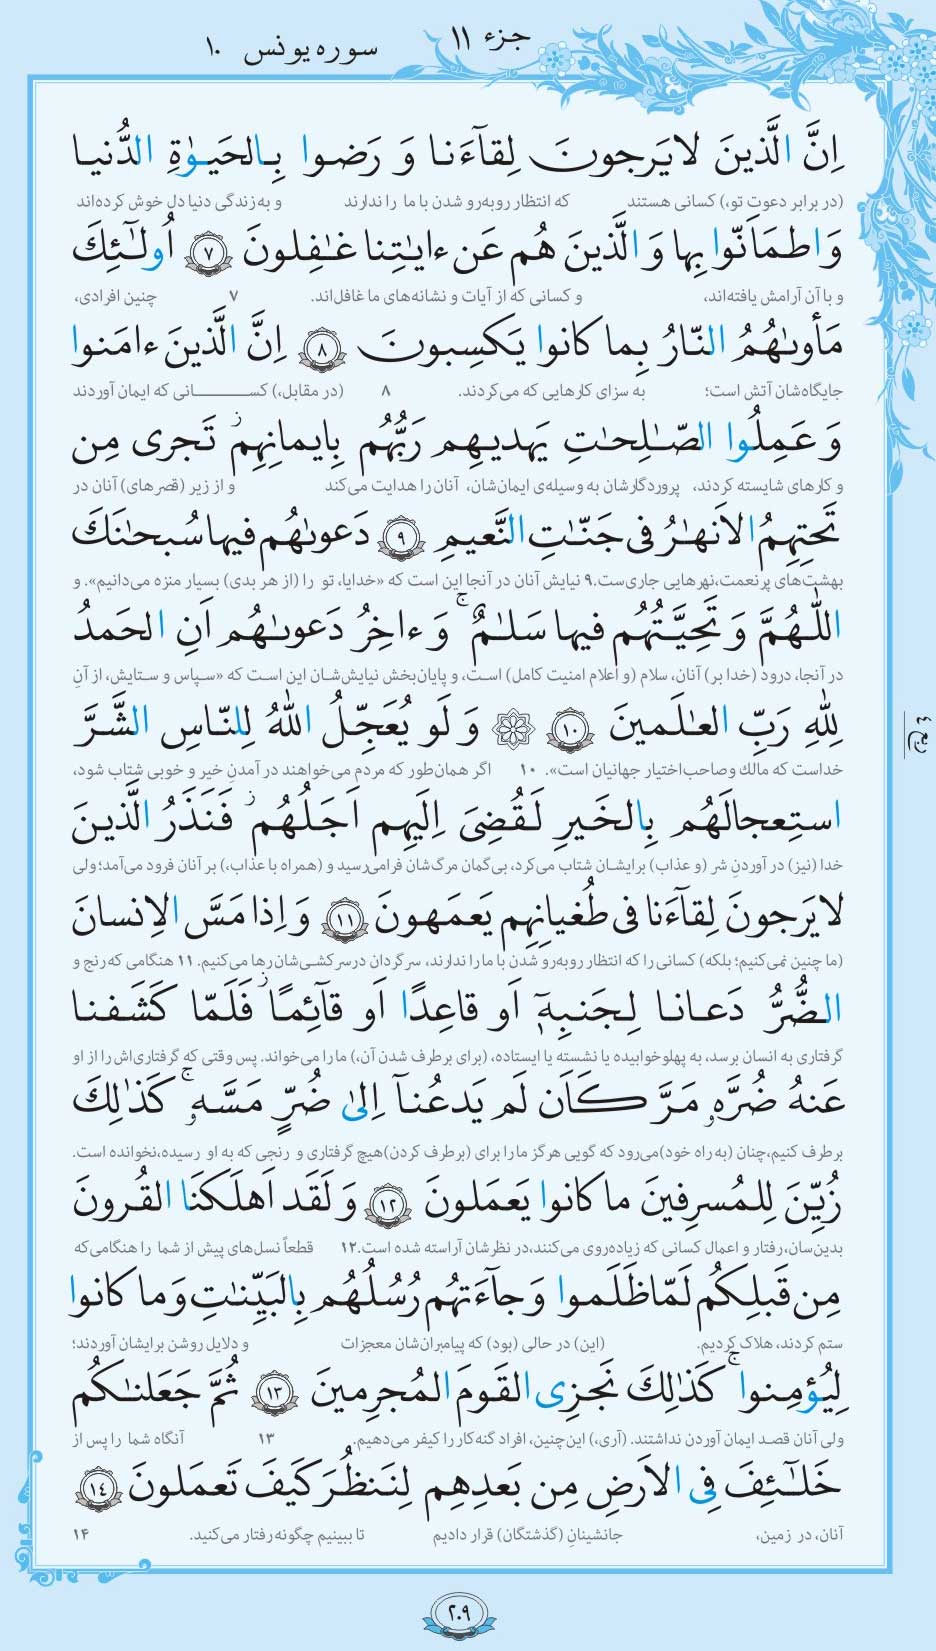 جزء ۱۱
سوره یونس ۱۰
اِنَّ الَّذینَ لایَرجونَ لِقآءَنا وَ رَضوا بِالحَیوٰةِ الدُّنیا
(در برابر دعوت تو،) کسانی هستند که انتظار روبه‌رو شدن با ما را ندارند و به زندگی دنیا دل خوش کرده‌اند
وَاطمَاَنّوا بِها وَالَّذینَ هُم عَن ءایٰتِنا غٰفِلونَ ۷ اُولٰٓئِکَ
و با آن آرامش یافته‌اند، و کسانی که از آیات و نشانه‌های ما غافل‌اند. ۷ چنین افرادی،
مَأوىٰهُمُ النّارُ بِما کانوا یَکسِبونَ ۸ اِنَّ الَّذینَ ءامَنوا
جایگاه‌شان آتش است؛ به سزای کارهایی که می‌کردند. ۸ (در مقابل،) کســـــانی که ایمان آوردند
وَ عَمِلُوا الصّٰلِحٰتِ یَهدیهِم رَبُّهُم بِایمانِهِم ۖ تَجری مِن
و کارهای شایسته کردند، پروردگارشان به وسیله‌ی ایمان‌شان، آنان را هدایت می‌کند و از زیر (قصرهای) آنان در
تَحتِهِمُ الاَنهٰرُ فی جَنّٰتِ النَّعیمِ ۹ دَعوىٰهُم فیها سُبحٰنَکَ
بهشت‌های پرنعمت، نهرهایی جاری‌ست. ۹ نیایش آنان در آنجا این است که «خدایا، تو را (از هر بدی) بسیار منزه می‌دانیم». و
اللّٰهُمَّ وَ تَحِیَّتُهُم فیها سَلٰمٌ ۚ وَ ءاخِرُ دَعوىٰهُم اَنِ الحَمدُ
در آنجا، درود (خدا بر) آنان، سلام (و اعلام امنیت کامل) است، و پایان‌بخش نیایش‌شان این است که «سپاس و ستایش، از آنِ
لِلّٰهِ رَبِّ العٰلَمینَ ۱۰ وَ لَو یُعَجِّلُ اللهُ لِلنّاسِ الشَّرَّ
خداست که مالك و صاحب‌اختیار جهانیان است». ۱۰ اگر همان‌طور که مردم می‌خواهند در آمدنِ خیر و خوبی شتاب شود،
استِعجالَهُم بِالخَیرِ لَقُضِیَ اِلَیهِم اَجَلُهُم ۖ فَنَذَرُ الَّذینَ
خدا (نیز) در آوردنِ شر (و عذاب) برایشان شتاب می‌کرد، بی‌گمان مرگ‌شان فرامی‌رسید و (همراه با عذاب،) بر آنان فرود می‌آمد؛ ولی
لایَرجونَ لِقآءَنا فی طُغیانِهِم یَعمَهونَ ۱۱ وَ اِذا مَسَّ الاِنسانَ
(ما چنین نمی‌کنیم؛ بلکه) کسانی را که انتظار روبه‌رو شدن با ما را ندارند، سرگردان درسرکشی‌شان رها می‌کنیم. ۱۱ هنگامی که رنج و
الضُّرُّ دَعانا لِجَنبِهٖٓ اَو قاعِدًا اَو قآئِمًا ۖ فَلَمّا کَشَفنا
گرفتاری به انسان برسد، به پهلو خوابیده یا نشسته یا ایستاده، (برای برطرف شدن آن،) ما را می‌خواند. پس وقتی که گرفتاری‌اش را از او
عَنهُ ضُرَّهٗ مَرَّ کَاَن لَم یَدعُنآ اِلىٰ ضُرٍّ مَسَّهٗ ۚ کَذٰلِکَ
برطرف کنیم، چنان (به راه خود) می‌رود که گویی هرگز ما را برای (برطرف کردن) هیچ گرفتاری و رنجی که به او رسیده، نخوانده است.
زُیِّنَ لِلمُسرِفینَ ما کانوا یَعمَلونَ ۱۲ وَ لَقَد اَهلَکنَا القُرونَ
بدین‌سان، رفتار و اعمال کسانی که زیاده‌روی می‌کنند، در نظرشان آراسته شده است. ۱۲ قطعاً نسل‌های پیش از شما را هنگامی‌که
مِن قَبلِکُم لَمّا ظَلَموا وَ جآءَتهُم رُسُلُهُم بِالبَیِّنٰتِ وَ ما کانوا
ستم کردند، هلاک کردیم. (این) در حالی (بود) که پیامبران‌شان معجزات و دلایل روشن برایشان آوردند؛
لِیُؤمِنوا ۚ کَذٰلِکَ نَجزِی القَومَ المُجرِمینَ ۱۳ ثُمَّ جَعَلنٰکُم
ولی آنان قصـد ایمان آوردن نداشتند. (آری،) این‌چنین، افراد گنه‌کار را کیفر می‌دهیم. ۱۳ آنگاه شما را پس از
خَلٰٓئِفَ فِی الاَرضِ مِن بَعدِهِم لِنَنظُرَ کَیفَ تَعمَلونَ ۱۴
آنان، در زمین، جانشینانِ (گذشتگان) قرار دادیم تا ببینیم چگونه رفتار می‌کنید. ۱۴
ربع ٤
۲۰۹